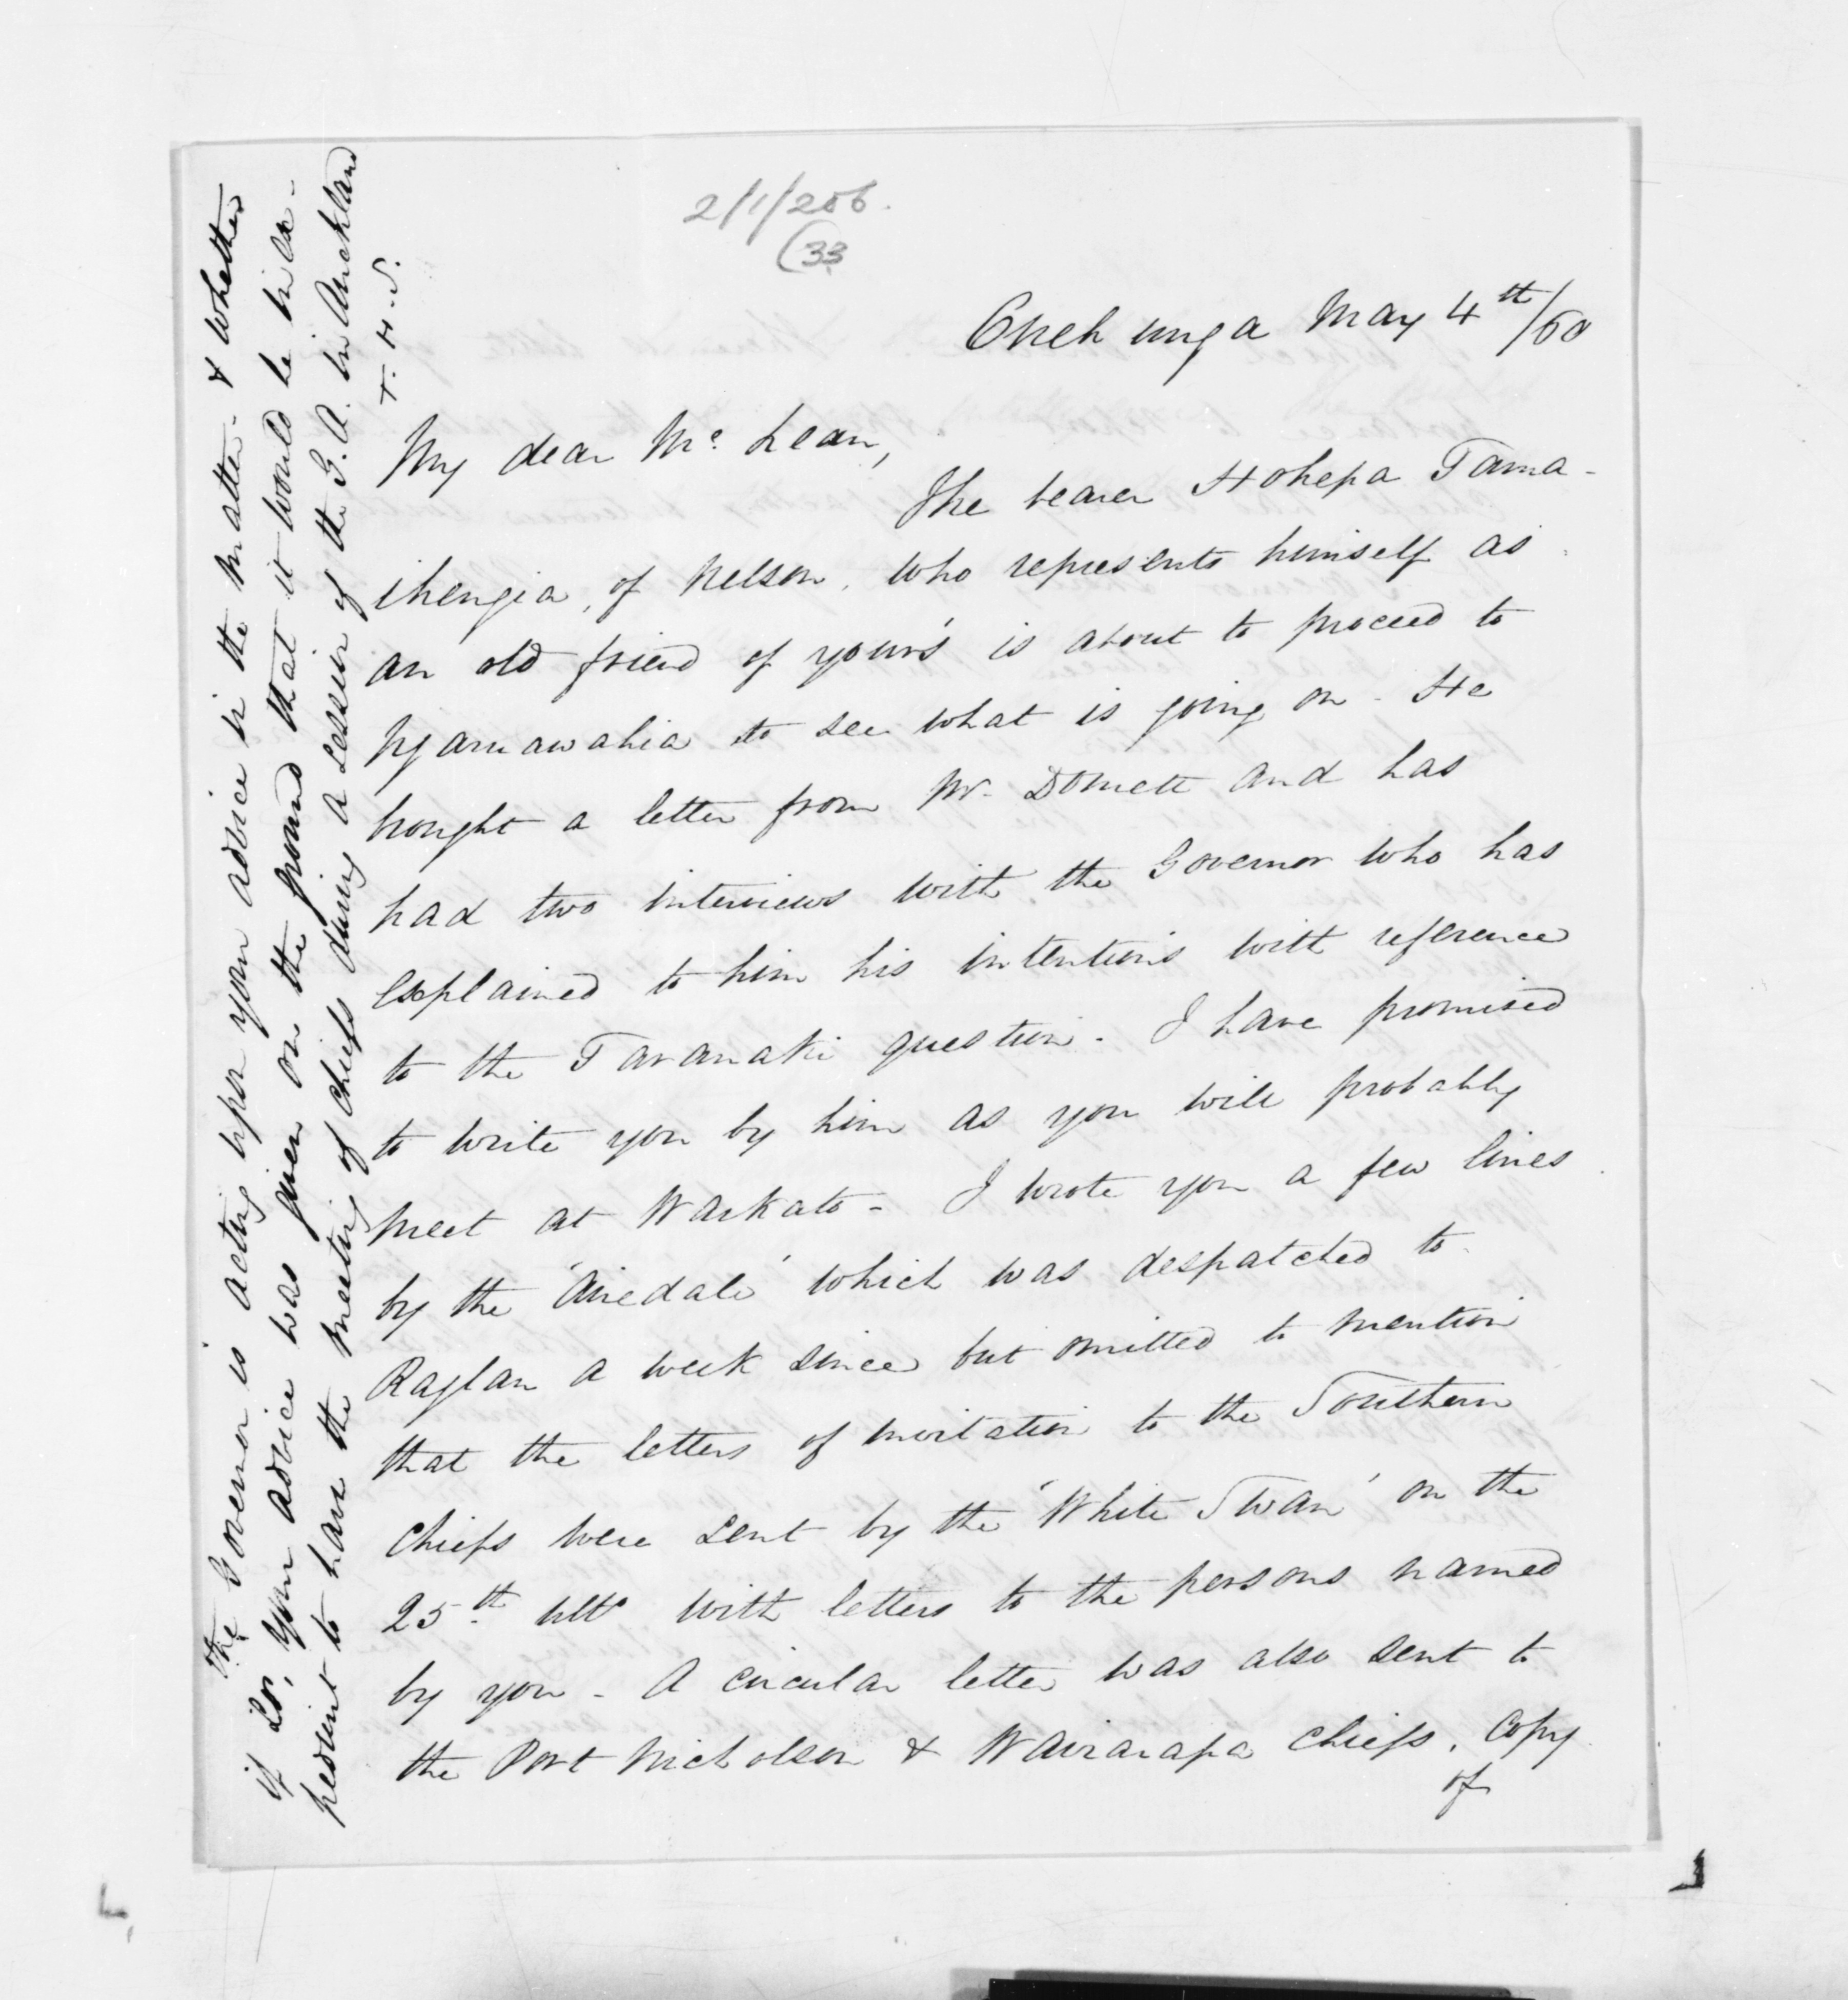 2/1/206.
(33
Onehunga May 4th/60
My dear McLean,
The bearer Hohepa Tama-
ihengia, of Nelson, who represents himself as
an old friend of your's is about to proceed to
Ngaruawahia to see what is going on. He
brought a letter from Mr. Domett and has
had two interviews with the Governor who has
explained to him his intentions with reference
to the Taranaki question. I have promised
to write you by him as you will probably
meet at Waikato - I wrote you a few lines
by the 'Airedale' which was despatched to
Raglan a week since but omitted to mention
that the letters of invitation to the Southern
Chiefs were sent by the 'White Swan' on the
25th ulto with letters to the persons named
by you - A circular letter was also sent to
the Port Nicholson & Wairarapa Chiefs, Copy
of
the Governor is acting upon your advice in the matter - & whether
if so, your advice was given on the ground that it would be inex-
pedient to have the meeting of chiefs during a session of the G.A. in Auckland
T. H. S.